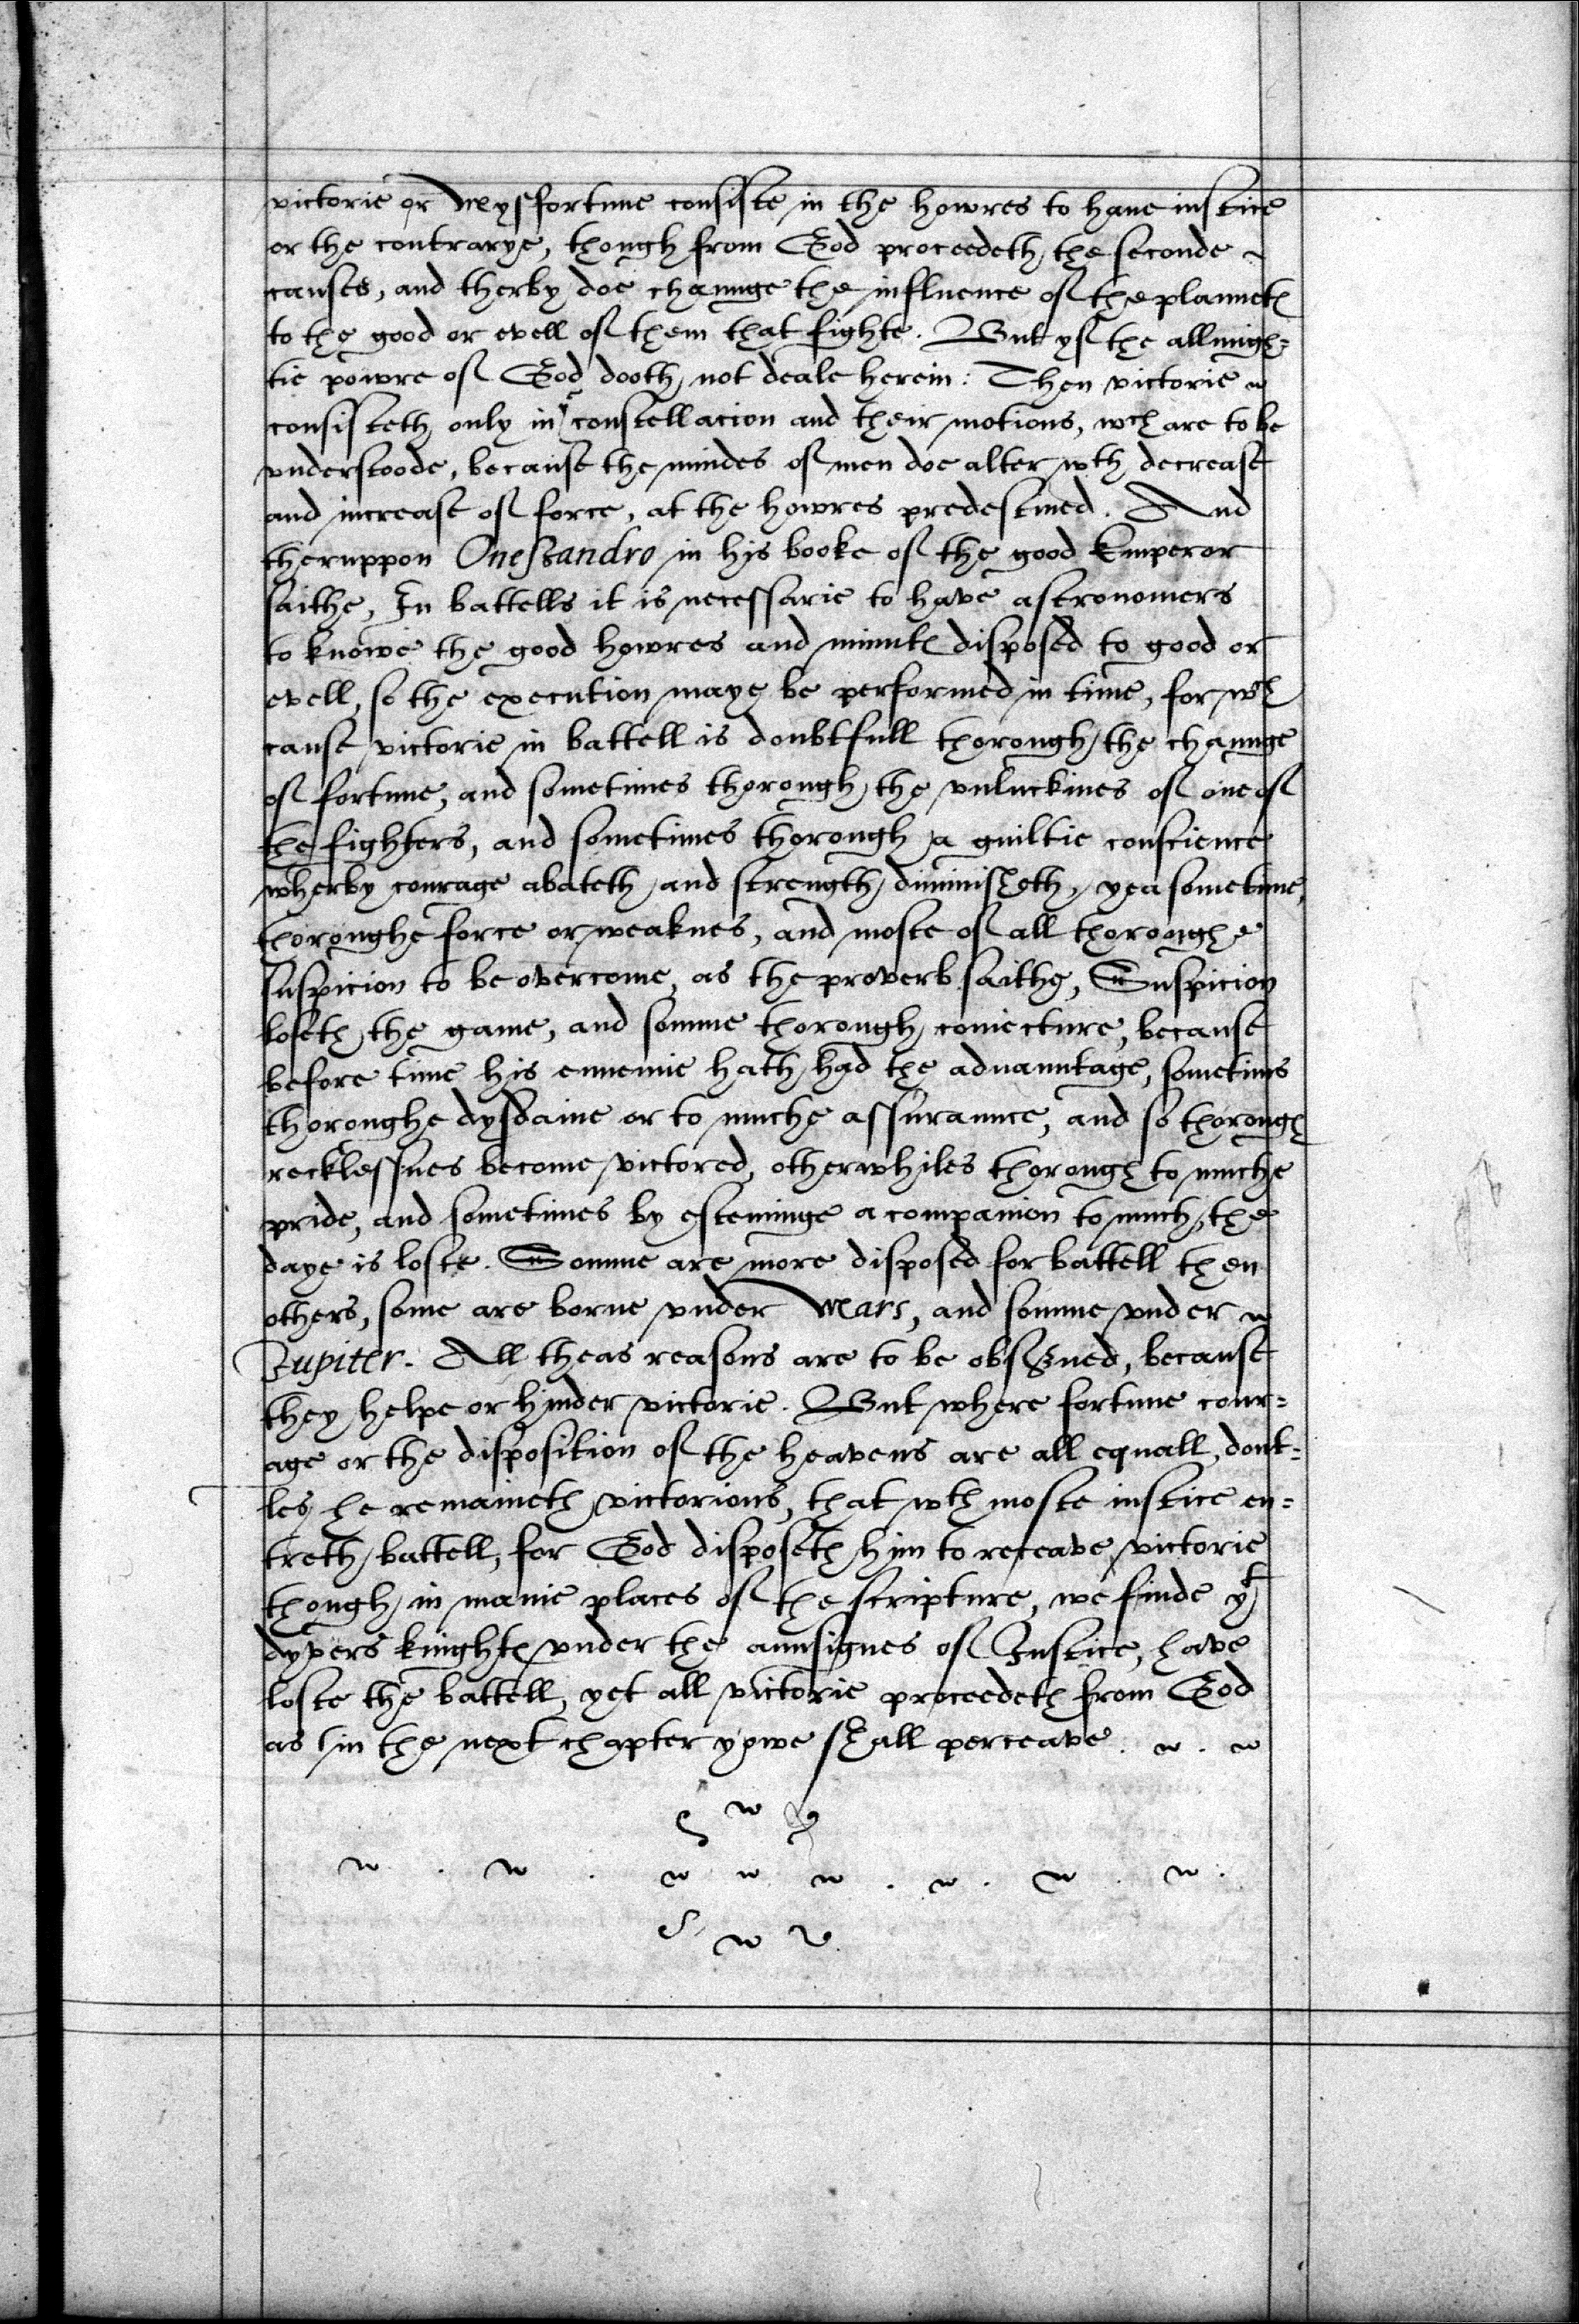 victorie or Mysfortune consiste in the howres to haue iustice
or the contrarye, though from God proceedeth the seconde
causes, and therby doe chaunge the influence of the plannetes
to the good or evell of them that fighte. But yf the allmigh=
tie powre of God dooth not deale herein: Then victorie
consisteth only in yͤ constellacion and their motions, wch are to be
vnderstoode, because the mindes of men doe alter wth decrease
and increase of force, at the howres predestined. And
theruppon Onessandro in his booke of the good Emperor
saithe, In battells it is necessarie to have astronomers
to knowe the good howres and minutes disposed to good or
evell, so the execution maye be performed in time, for wch
cause victorie in battell is doubtfull thorough the chaunge
of fortune, and sometimes thorough the vnluckines of one of
the fighters, and sometimes thorough a guiltie conscience
wherby courage abateth and strength diminisheth, yea sometime,
thoroughe force or weaknes, and moste of all thoroughe
suspicion to be overcome, as the proverb saithe, Suspicion
loseth the game, and somme thorough coniecture, because
before time his ennemie hath had the aduauntage, sometims
thoroughe dysdaine or to muche assuraunce, and so thorough
recklessnes become victored, otherwhiles thorough to muche
pride, and sometimes by esteminge a companion to much, the
daye is loste. Somme are more disposed for battell then
others, some are borne vnder Mars, and somme vnder
Iupiter. All theas reasons are to be obserued, because
they helpe or hinder victorie. But where fortune cour=
age or the disposition of the heavens are all equall, dout=
les he remaineth victorious, that wth moste iustice en=
treth battell, for God disposeth him to receave victorie
though in manie places of the scripture, we finde yt
dyvers knightes vnder the aunsignes of Iustice, have
loste the battell, yet all victorie proceedeth from God
as in the next chapter yowe shall perceave.